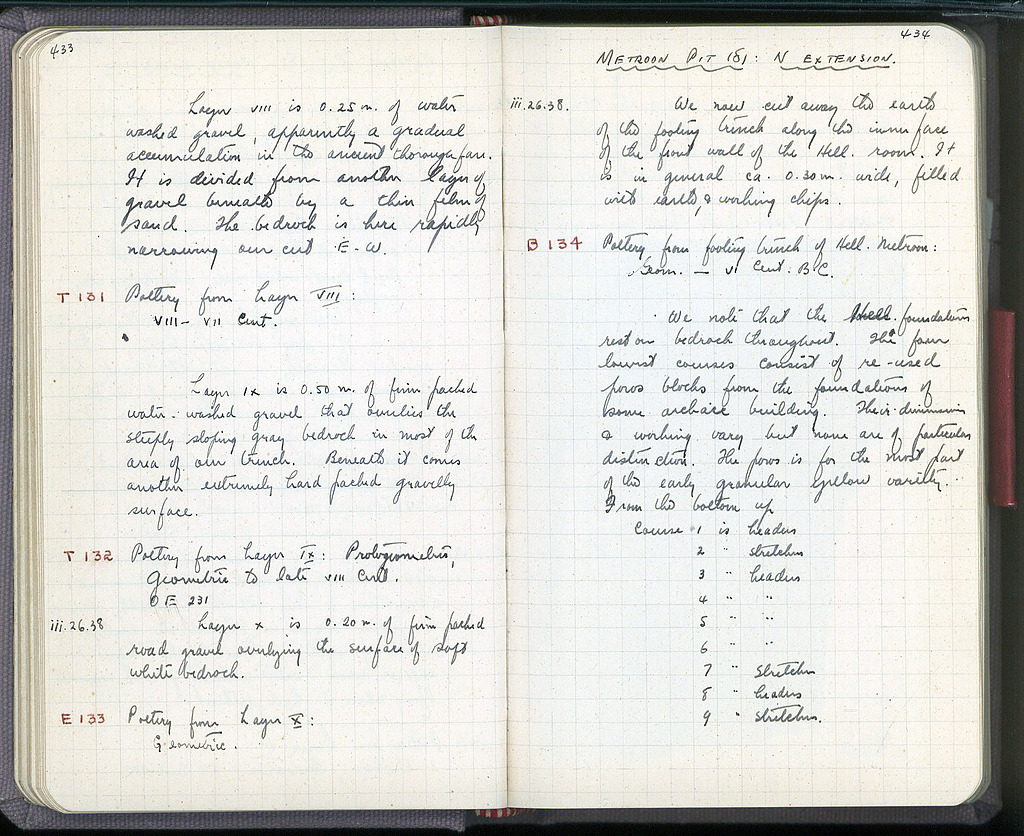 433
Layer VIII is 0.25 m. of water
washed gravel, apparently a gradual
accumulation in the ancient thoroughfare.
It is divided from another layer of
gravel beneath by a thin film of
sand. The bedrock is here rapidly
narrowing our cut E-W.
T 131 Pottery from Layer VIII:
VIII - VII Cent.
Layer IX is 0.50 m. of firm packed
water-washed gravel that overlies the
steeply sloping gray bedrock in most of the
area of our trench. Beneath it comes
another extremely hard packed gravelly
surface.
T 132 Pottery from Layer IX: Protogeometric,
Geometric to late VIII Cent.
OE 231
iii.26.38 Layer X is 0.20 m. of firm packed
road gravel overlying the surface of soft
white bedrock.
E 133 Pottery from Layer X:
Geometric.
434
METROON PIT (δ): N EXTENSION.
iii.26.38. We now cut away the earth
of the footing trench along the inner face
of the front wall of the Hell. room. It
is in general ca. 0.30 m. wide, filled
with earth & working chips.
B 134 Pottery from footing trench of Hell. Metroon:
Geom. - VI Cent. B.C.
We note that the Hell. foundations
rest on bedrock throughout. The four
lowest courses consist of re-used
poros blocks from the foundations of
some archaic building. Their dimensions
& working vary but none are of particular
distinction. The poros is for the most part
of the early granular yellow variety.
From the bottom up
Course 1 is headers
2 " stretchers
3 " headers
4 " "
5 " "
6 " "
7 " stretchers
8 " headers
9 " stretchers.